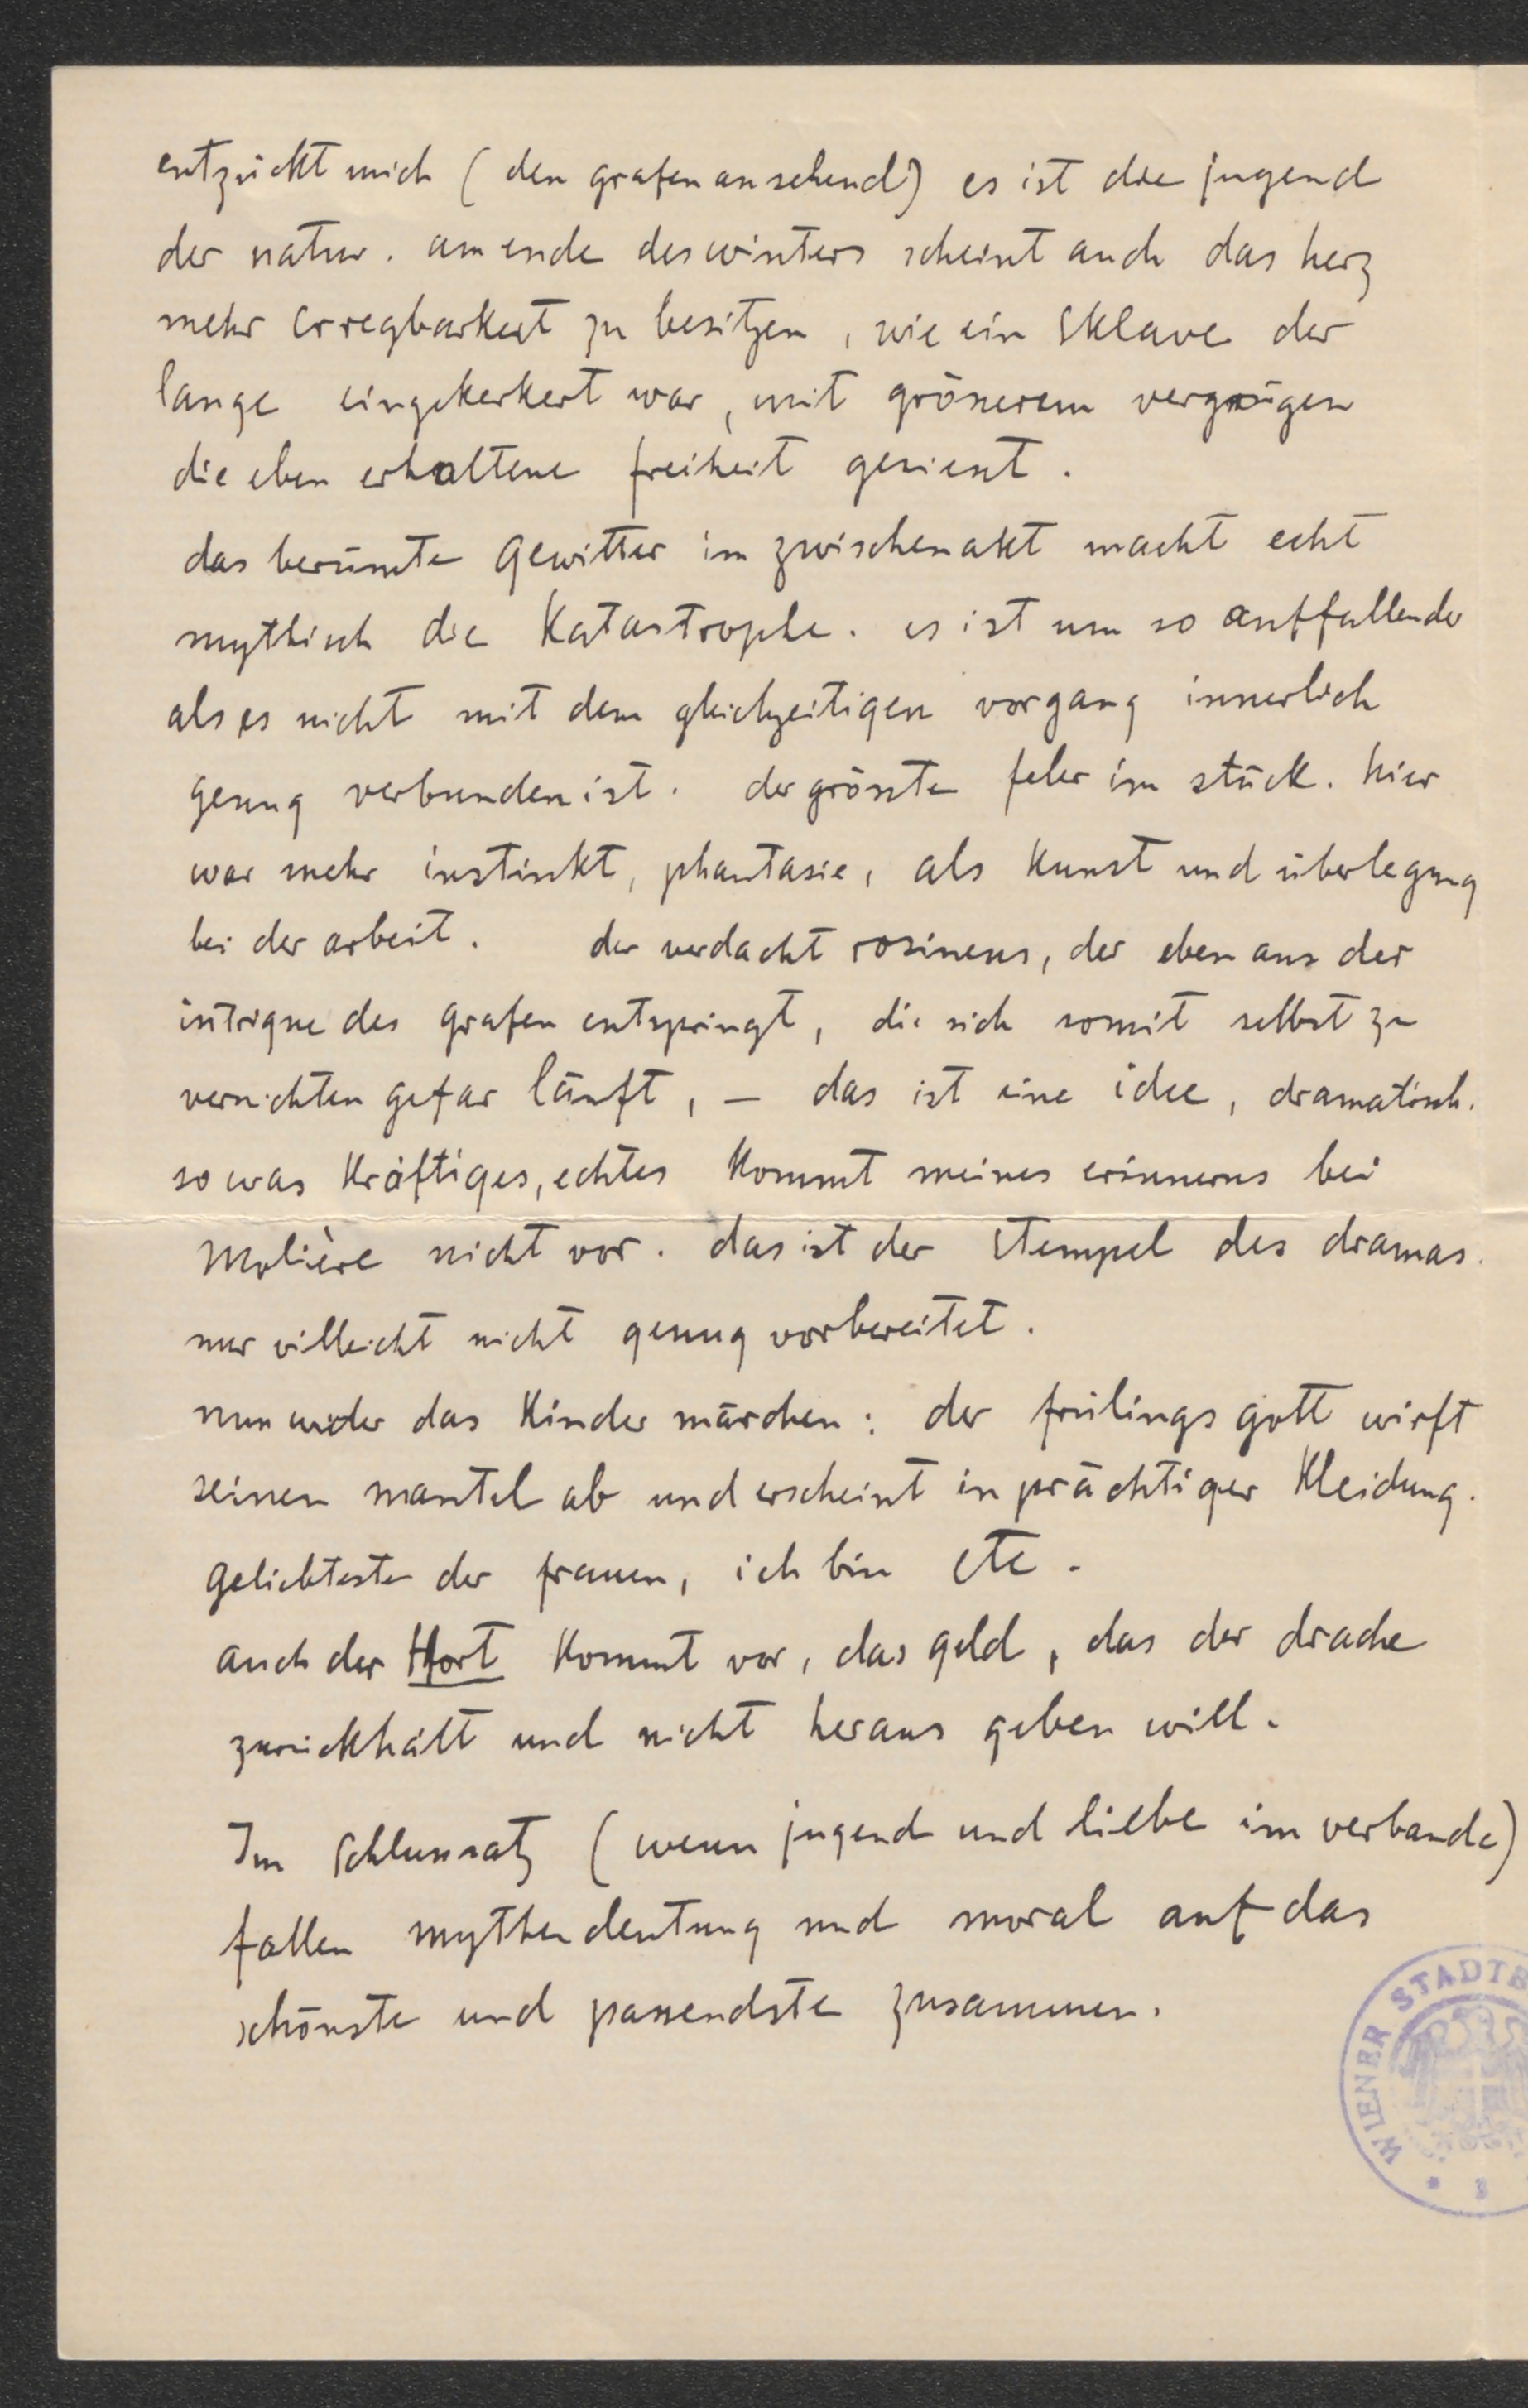 entzückt mich (den grafen ansehend) es ist die jugend
der natur. am ende des winters scheint auch das herz
mehr erregbarkeit zu besitzen, wie ein Sklave der
lange eingekerkert war, mit grösserem vergnügen
die eben erhaltene freiheit geniesst.
das berümte Gewitter im zwischenakt macht echt
mythisch die Katastrophe. es ist um so auffallender
als es nicht mit dem gleichzeitigen vorgang innerlich
genug verbunden ist. der grösste feler im stück. hier
war mehr instinkt, phantasie, als kunst und überlegung
bei der arbeit. der verdacht rosinens, der eben aus der
intrigue des grafen entspringt, die sich somit selbst zu
vernichten gefar läuft, – das ist eine idee, dramatisch.
so was kräftiges, echtes kommt meines erinnerns bei
Molière nicht vor. das ist der Stempel des dramas.
nur villeicht nicht genug vorbereitet.
nun wider das kinder märchen: der frülings gott wirft
seinen mantel ab und erscheint in prächtiger Kleidung.
geliebteste der frauen, ich bin etc.
auch der Hort kommt vor, das geld, das der drache
zurückhält und nicht heraus geben will.
Im Schlusssatz (wenn jugend und liebe im verbande)
fallen mythendeutung und moral auf das
schönste und passendste zusammen.
WIENER STADTB